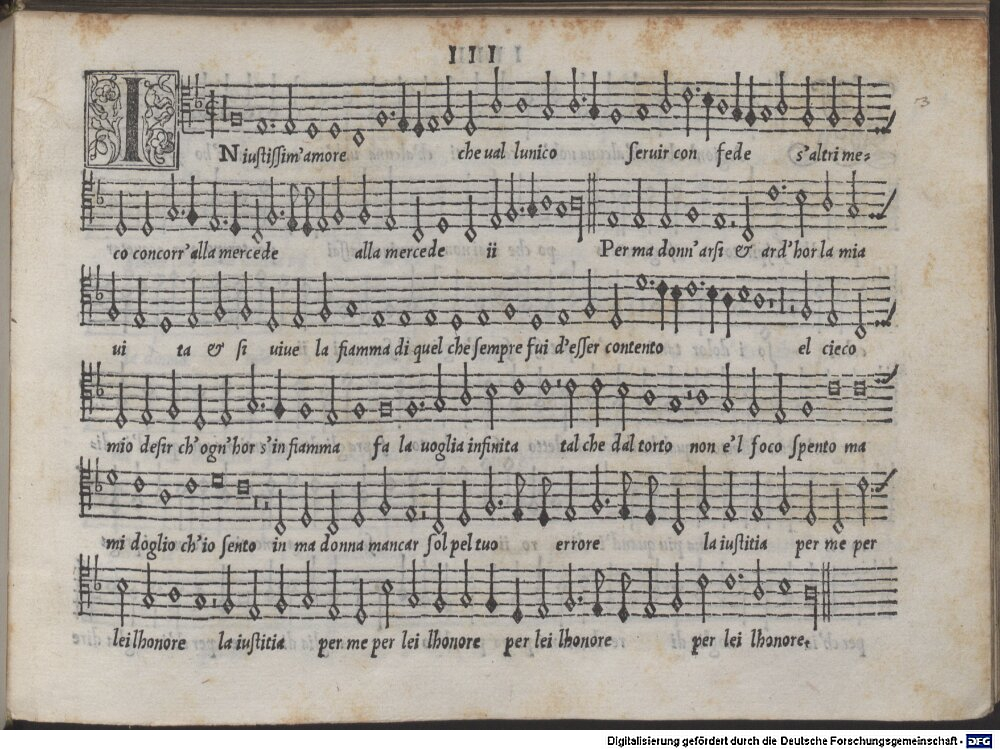 IIII
INiustissim'amore che ual lunico seruir con fede s'altri me=
co concorr'alla mercede alla mercede ii Per ma donn'arsi & ard'hor la mia
ui ta & si uiue la fiamma di quel che sempre fui d'esser contento el cieco
mio desir ch'ogn'hor s'in fiamma fa la uoglia infinita tal che dal torto non e'l foco spento ma
mi doglio ch'io sento in ma donna mancar sol pel tuo errore la iustitia per me per
lei lhonore la iustitia per me per lei lhonore per lei lhonore per lei lhonore.
Digitalisierung gefördert durch die Deutsche Forschungsgemeinschaft - DFG